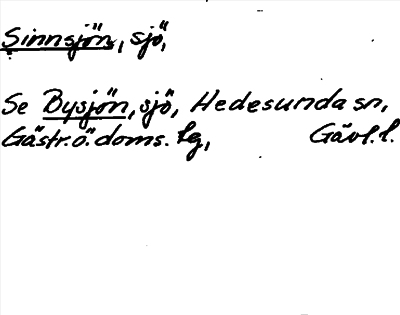 Sinnsjön, sjö,
Se Bysjön, sjö, Hedesunda sn,
Gästr. ö. doms. lg, Gävl. l.